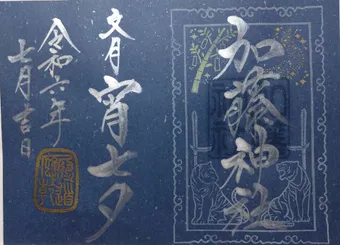 加藤神社
文月 宵七夕
令和六年
七月吉日